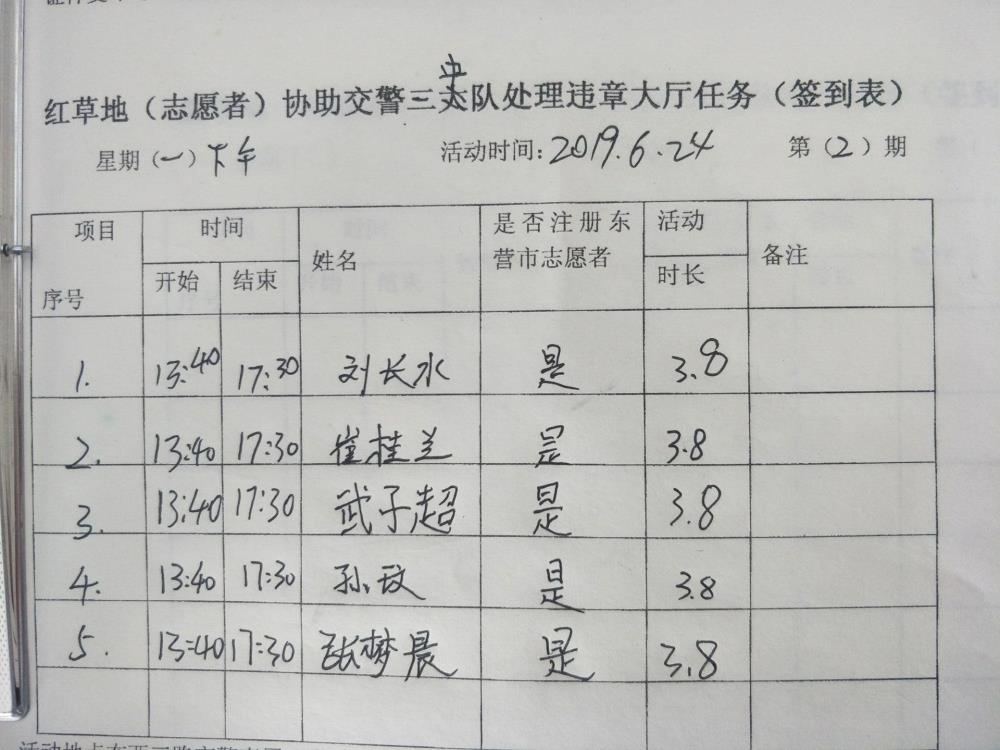 红草地（志愿者）协助交警三中队处理违章大厅任务（签到表）
星期（一）下午 活动时间：2019.6.24 第（2）期
项目 序号 时间 开始 结束 姓名 是否注册东营市志愿者 活动时长 备注
1. 13:40 17:30 刘长水 是 3.8
2. 13:40 17:30 崔桂兰 是 3.8
3. 13:40 17:30 武子超 是 3.8
4. 13:40 17:30 孙玟 是 3.8
5. 13:40 17:30 张梦晨 是 3.8